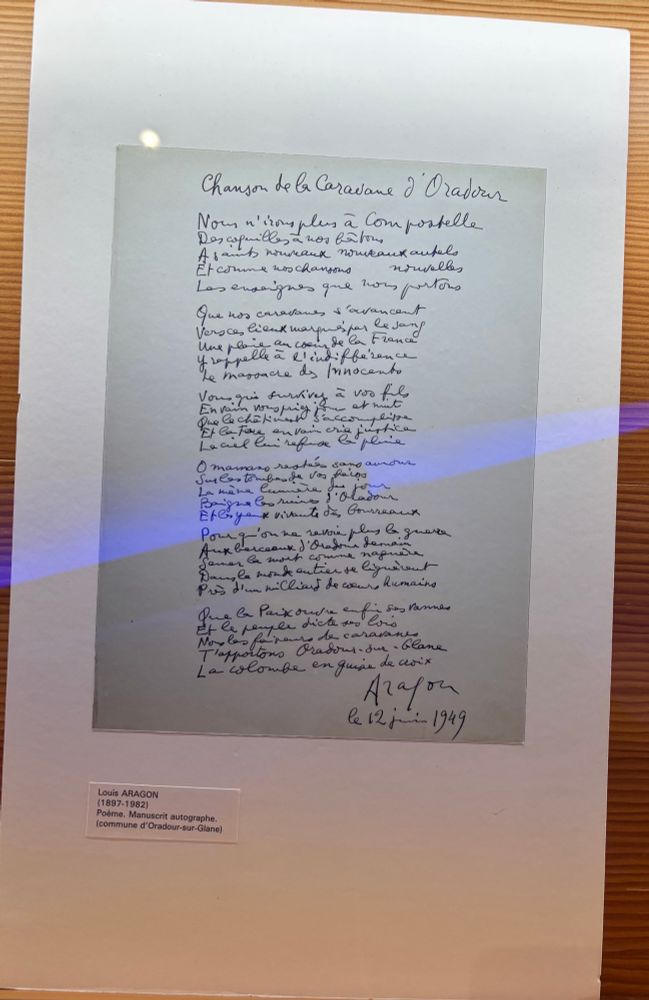 Chanson de la Caravane d'Oradour
Nous n'irons plus à Compostelle
Des coquilles à nos bâtons
A saints nouveaux nouveaux autels
Et comme nos chansons nouvelles
Les enseignes que nous portons
Que nos caravanes s'avancent
Vers ces lieux marqués par le sang
Une plaie au coeur de la France
Y rappelle à l'indifférence
Le massacre des Innocents
Vous qui survivez à vos fils
En vain vous priez jour et nuit
Que le châtiment s'accomplisse
Et la terre en vain crie justice
Le ciel lui refuse la pluie
O mamans restées sans amour
Sur les tombes de vos héros
La même lumière du jour
Baigne les ruines d'Oradour
Et les yeux vivants des bourreaux
Pour qu'on ne revoie plus la guerre
Aux berceaux d'Oradour demain
Semer la mort comme naguère
Dans le monde entier se liguèrent
Près d'un milliard de coeurs humains
Que la Paix ouvre enfin ses vannes
Et le peuple dicte ses lois
Nous les faiseurs de caravanes
T'apportons Oradour-sur-Glane
La colombe en guise de croix
Aragon
le 12 juin 1949
Louis ARAGON
(1897-1982)
Poème. Manuscrit autographe.
(commune d'Oradour-sur-Glane)